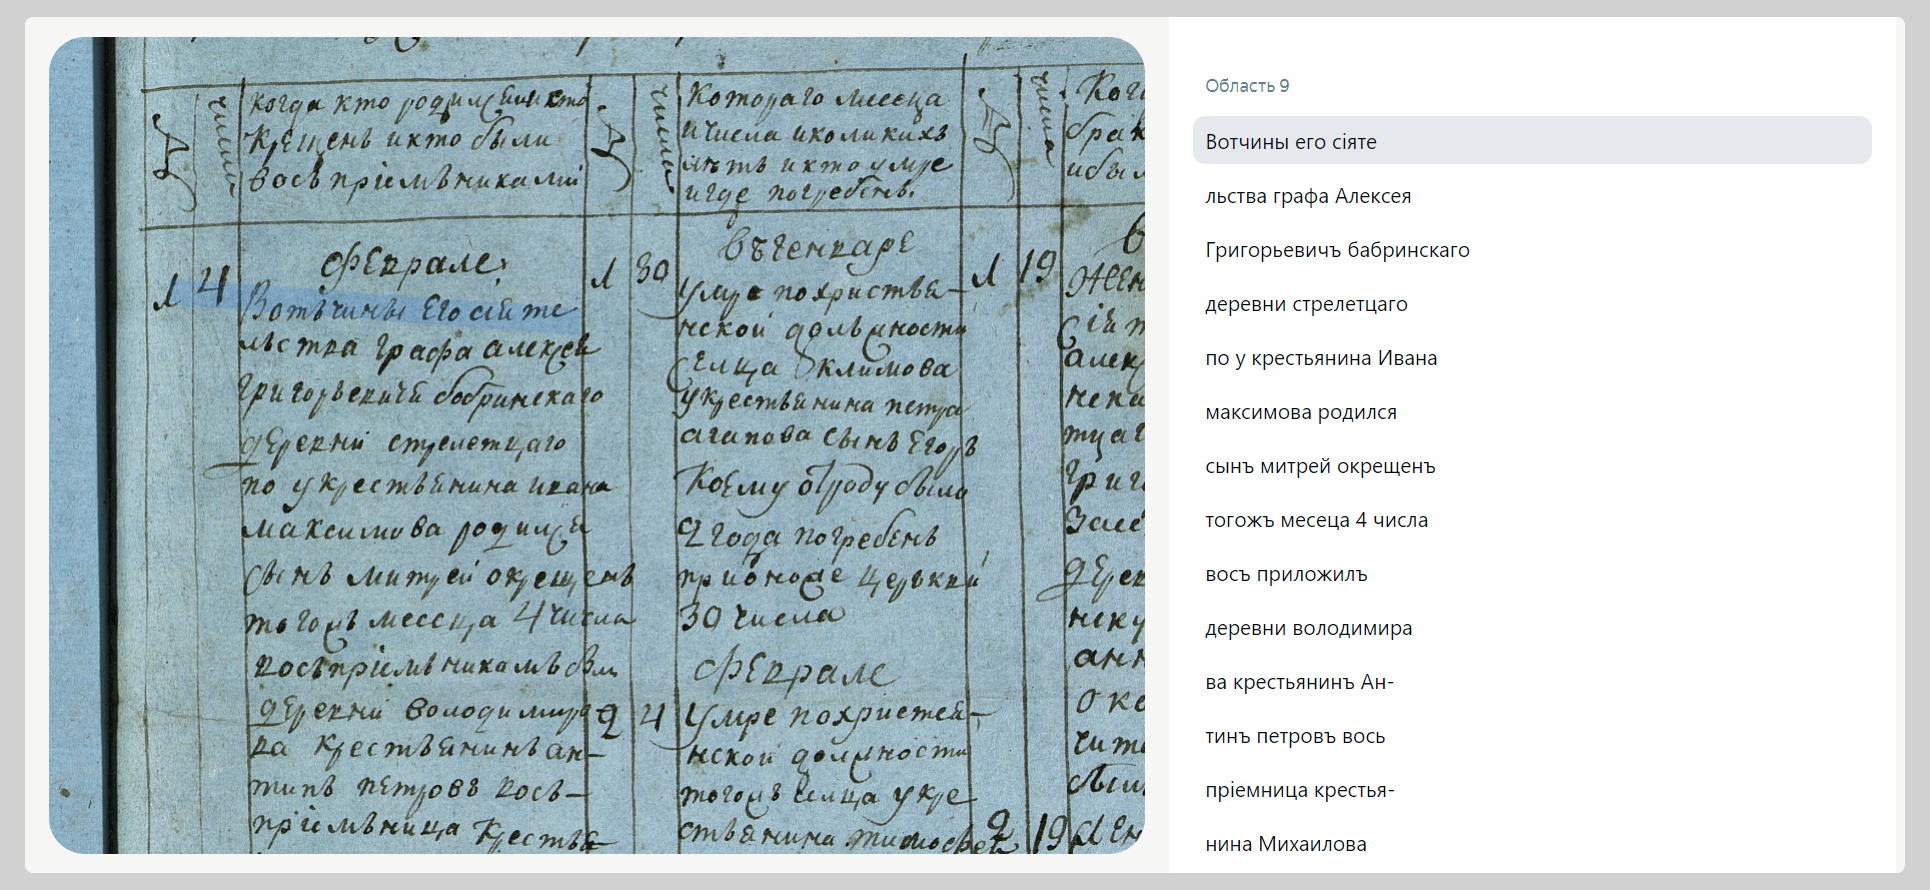 когда кто родился и кто
крещенъ и кто были
восъприемъниками
числа
котораго месеца
и числа и коликихъ
летъ и кто умре
и где погребенъ.
числа
числа
феврале
1 4
Вотъчины его сіяте
льства графа алексея
григорьевичя бобринскаго
деревни стрелетцаго
по у крестьянина ивана
максимова родился
сынъ митрей окрещенъ
тогожъ месеца 4 числа
восъпріемъникомъ был
деревни володимиро
ва крестьянинъ ан-
типъ петровъ вось-
пріемъница крестья-
въ генваре
1 30
умре по христия-
нской должности
селца климова
у крестьянина петра
агапова сынъ егоръ
коему отроду было
2 года погребенъ
при оной церькви
30 числа
феврале
2 4
умре по христия-
нской должности
тогожъ селца у кре
стьянина тимофея
1 19
2 19
Область 9
Вотчины его сіяте
льства графа Алексея
Григорьевичъ бабринскаго
деревни стрелетцаго
по у крестьянина Ивана
максимова родился
сынъ митрей окрещенъ
тогожъ месеца 4 числа
восъ приложилъ
деревни володимира
ва крестьянинъ Ан-
тинъ петровъ вось
пріемница крестья-
нина Михаилова